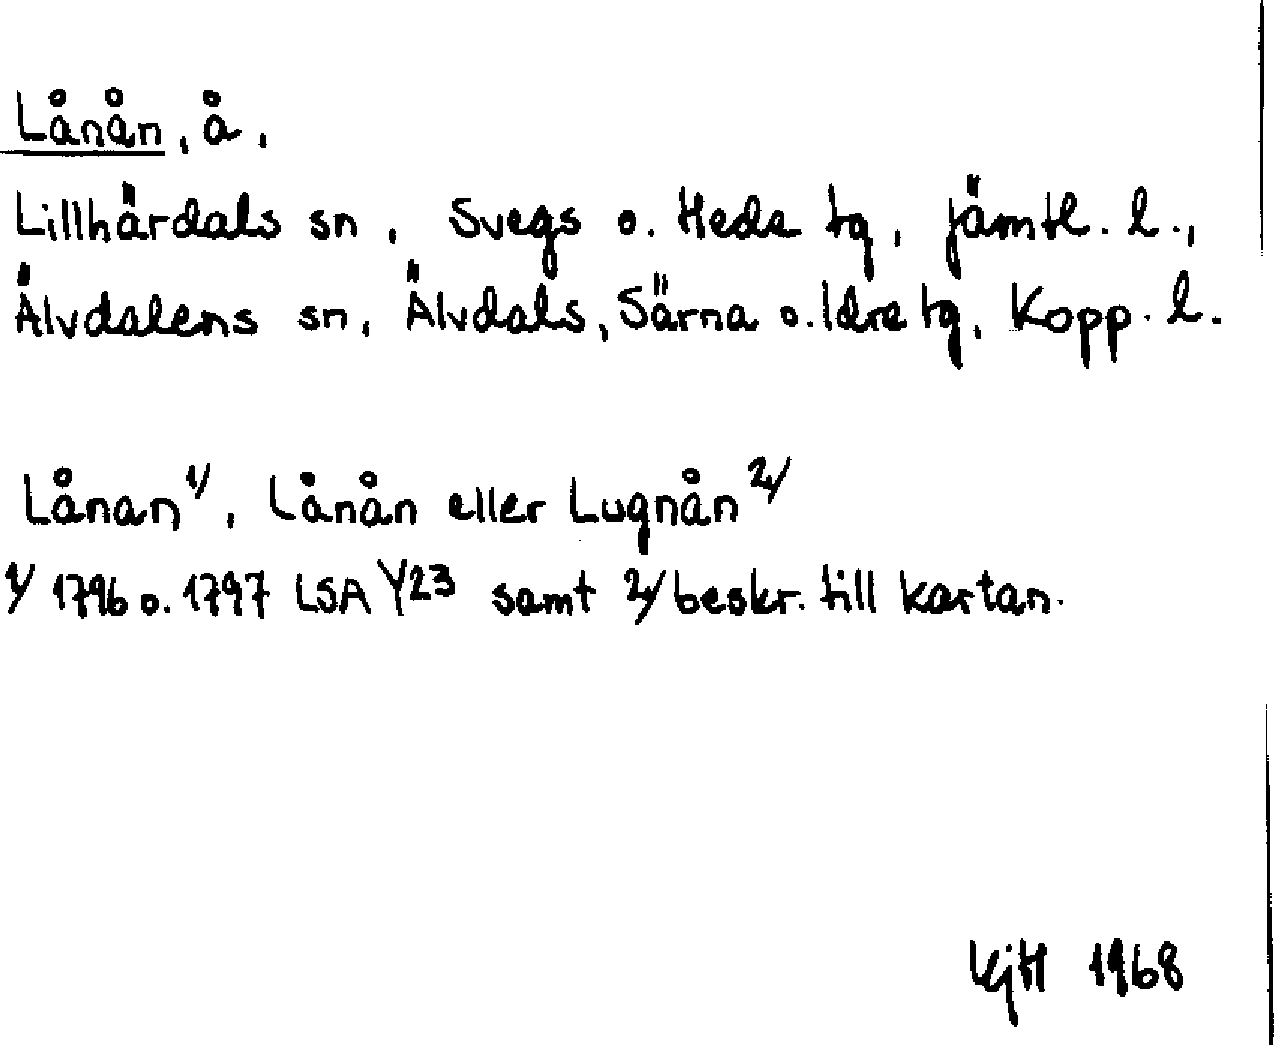 Lånån, å,
Lillhärdals sn, Svegs o. Heds tg, Jämtl. l.,
Älvdalens sn, Älvdals, Särna o. Idre tg, Kopp. l.
Lånan 1/, Lånån eller Lugnån 2/
1/ 1796 o. 1797 LSA Y23 samt 2/ beskr. till kartan.
1968